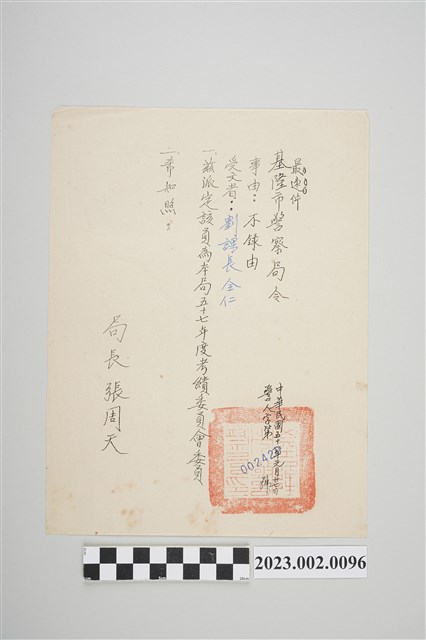 最速件
基隆市警察局令
中華民國五十
警人字第
00242
號
事由：不錄由
受文者：劉課長全仁
一、茲派定該員為本局五十七年度考績委員會委員
二、希知照。
局長張周天
2023.002.0096